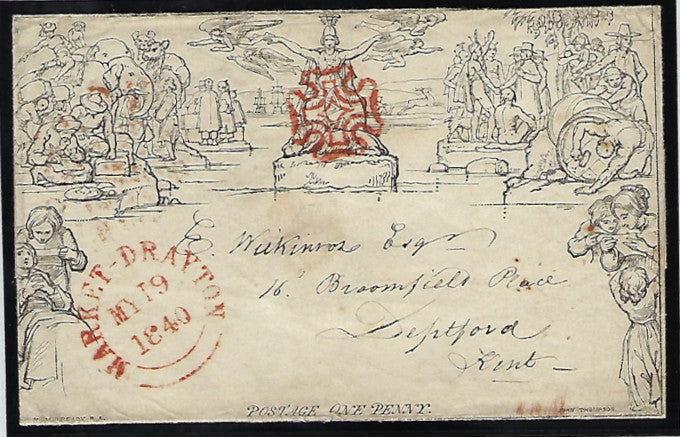 E. Wilkinson Esqr
16 Broomfield Place
Deptford
Kent
MARKET-DRAYTON
MY 19
1840
POSTAGE ONE PENNY.
W. MULREADY. R.A.
JOHN THOMPSON.